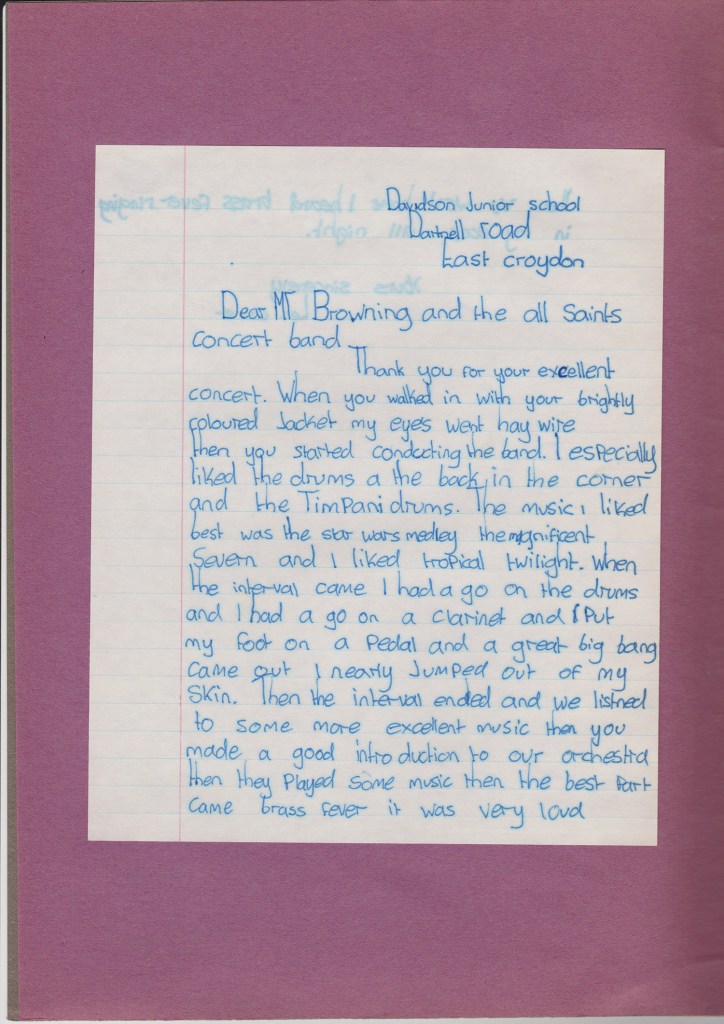 Davidson Junior school
Dartnell road
East croydon
Dear Mr Browning and the all saints
concert band
Thank you for your excellent
concert. When you walked in with your brightly
coloured Jacket my eyes went hay wire
then you started conducting the band. I especially
liked the drums a the back in the corner
and the TimPani drums. The music I liked
best was the star wars medley the magnificent
Severn and I liked tropical twilight. When
the interval came I had a go on the drums
and I had a go on a clarinet and I Put
my foot on a Pedal and a great big bang
came out I nearly Jumped out of my
Skin. Then the interval ended and we listned
to some more excellent music then you
made a good introduction to our orchestra
then they Played some music then the best Part
came brass fever it was very loud
I heard brass fever singing
in all night.
Yours sincerely